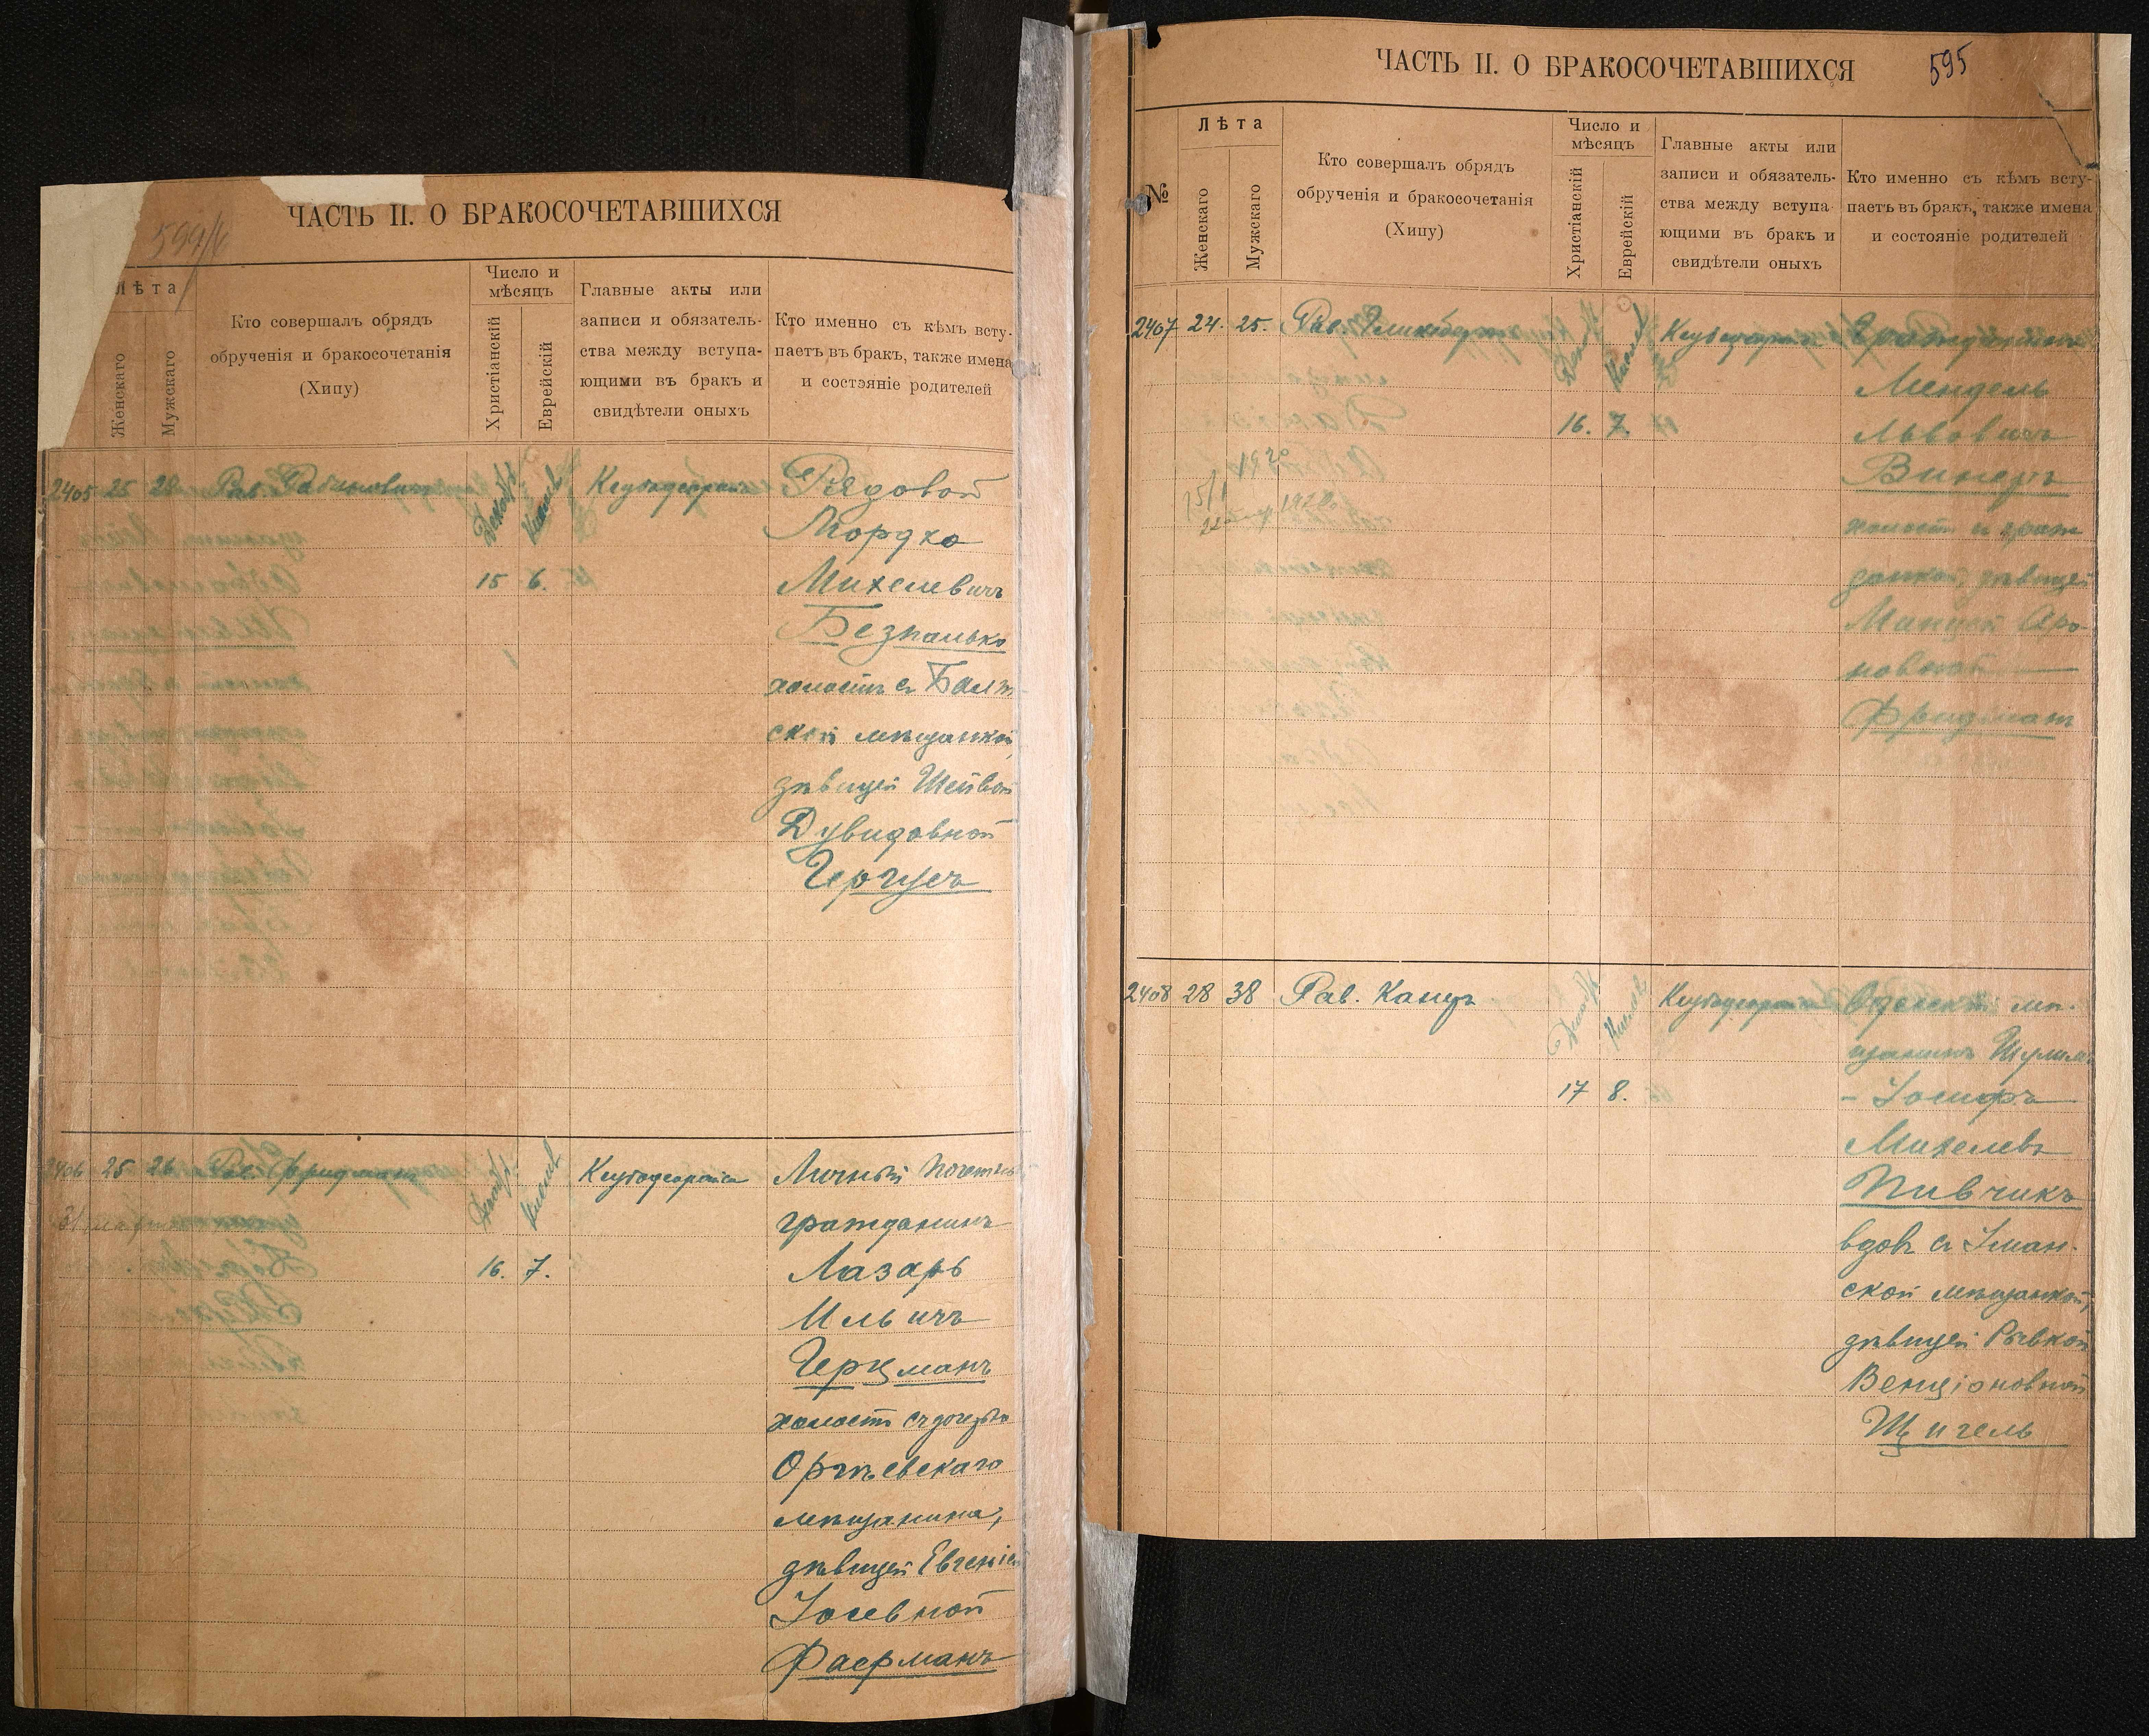 594/6
ЧАСТЬ II. О БРАКОСОЧЕТАВШИХСЯ
Лѣта
Женскаго
Мужскаго
Кто совершалъ обрядъ
обрученія и бракосочетанія
(Хипу)
Число и
мѣсяцъ
Христіанскій
Еврейскій
Главные акты или
записи и обязатель-
ства между вступа-
ющими въ бракъ и
свидѣтели оныхъ
Кто именно съ кѣмъ всту-
паетъ въ бракъ, также имена
и состояніе родителей
2405 25 28 Рав. Рабиновичъ
Декабрь
Кислев
15 6.
Ксубодеорайса
Рядовой
Мордко
Михелевичъ
Безпалько
холостъ съ Балт-
ской мѣщанкой,
дѣвицей Шейвой
Дувидовной
Гергусъ
2406 25 26 Рав. Фридманъ
Декабрь
Кислев
16. 7.
Ксубодеорайса
Личный почетный
гражданинъ
Лазарь
Ильичъ
Герцманъ
холостъ съ дочерью
Оргѣевскаго
мѣщанина,
дѣвицей Евгеніей
Іосевной
Фаерманъ
ЧАСТЬ II. О БРАКОСОЧЕТАВШИХСЯ
595
№
Лѣта
Женскаго
Мужскаго
Кто совершалъ обрядъ
обрученія и бракосочетанія
(Хипу)
Число и
мѣсяцъ
Христіанскій
Еврейскій
Главные акты или
записи и обязатель-
ства между вступа-
ющими въ бракъ и
свидѣтели оныхъ
Кто именно съ кѣмъ всту-
паетъ въ бракъ, также имена
и состояніе родителей
2407 24. 25. Рав. Гликсбергъ
Декабрь
Кислев
16. 7.
Ксубодеорайса
Гражданинъ
Мендель
Львовичъ
Винеръ
холостъ съ граж
данкой, дѣвицей
Маніей Аро-
новной
Фридманъ
2408 28 38 Рав. Канцъ
Декабрь
Кислев
17 8.
Ксубодеорайса
Одесскій мѣ-
щанинъ Шулимъ
- Іосифъ
Михелевъ
Пивчикъ
вдовъ съ Уман-
ской мѣщанкой,
дѣвицей Ривкой
Бенціоновной
Щигель